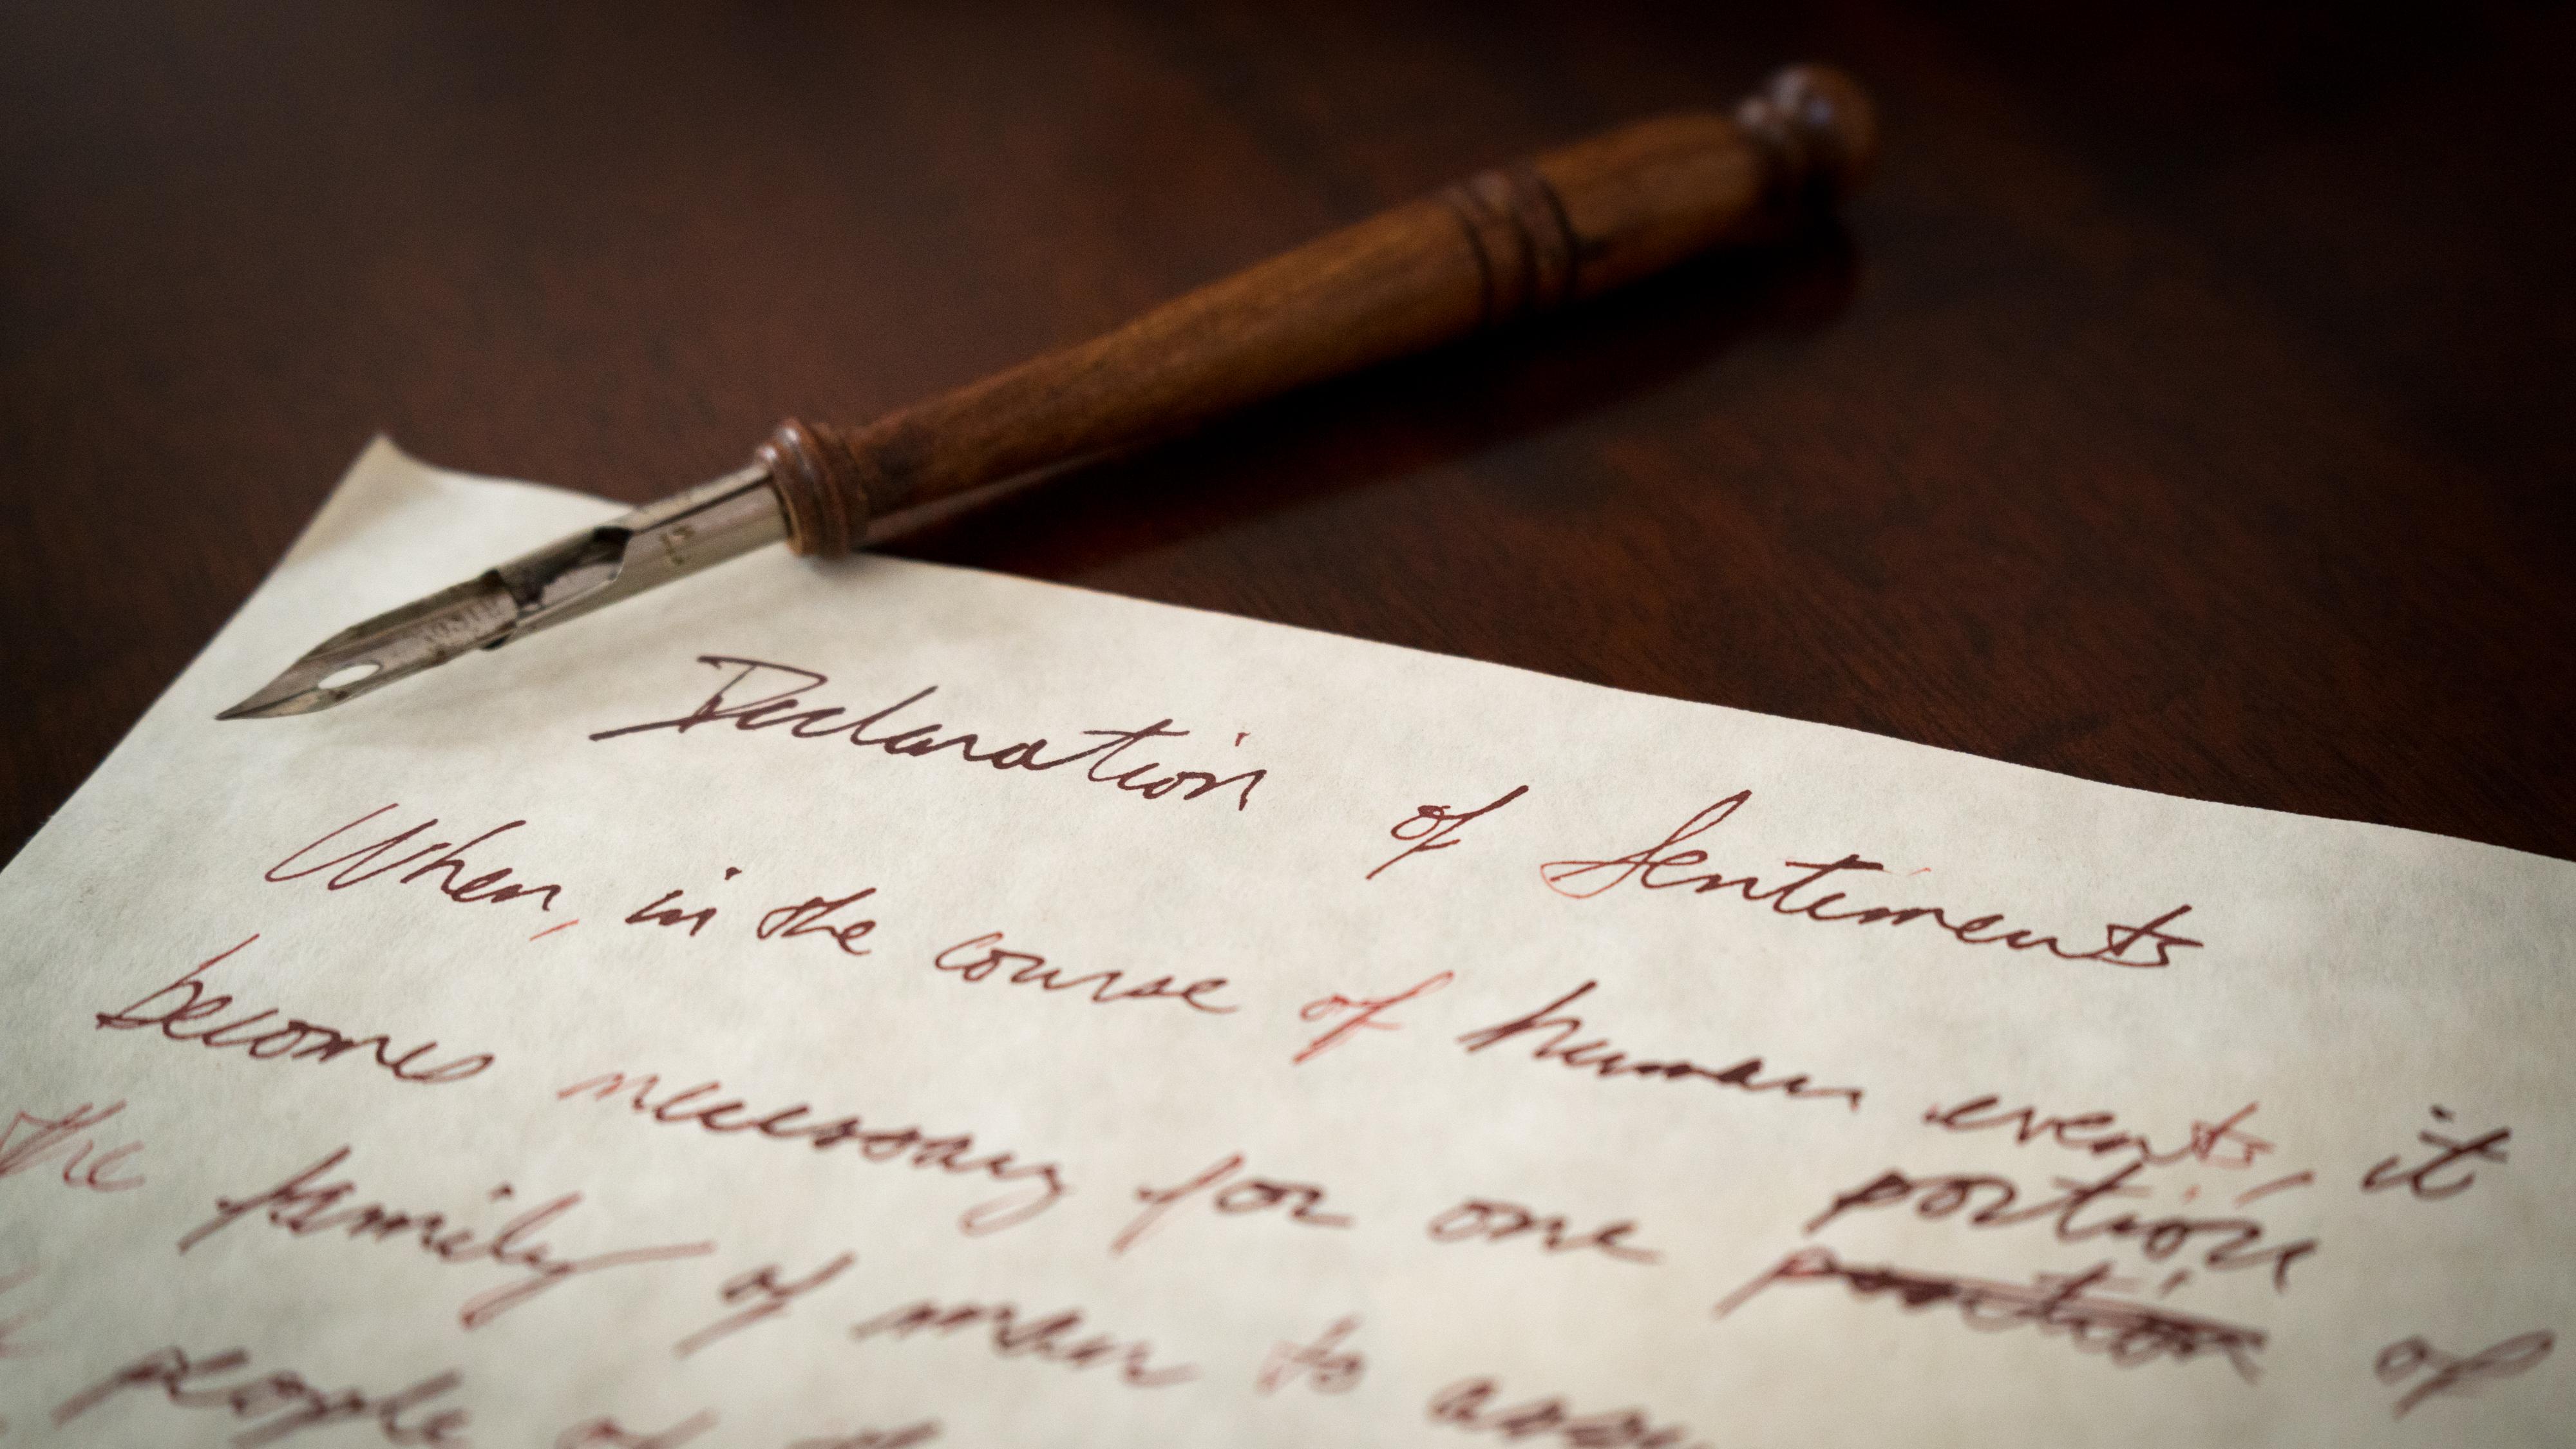 Declaration of Sentiments
When, in the course of human events, it
becomes necessary for one portion of
the family of man to
people of